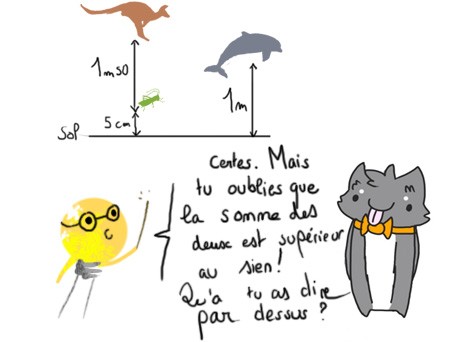 1m50
1m
5cm
Sol
Certes. Mais
tu oublies que
la somme des
deux est supérieur
au sien!
Qu'a tu as dire
par dessus ?